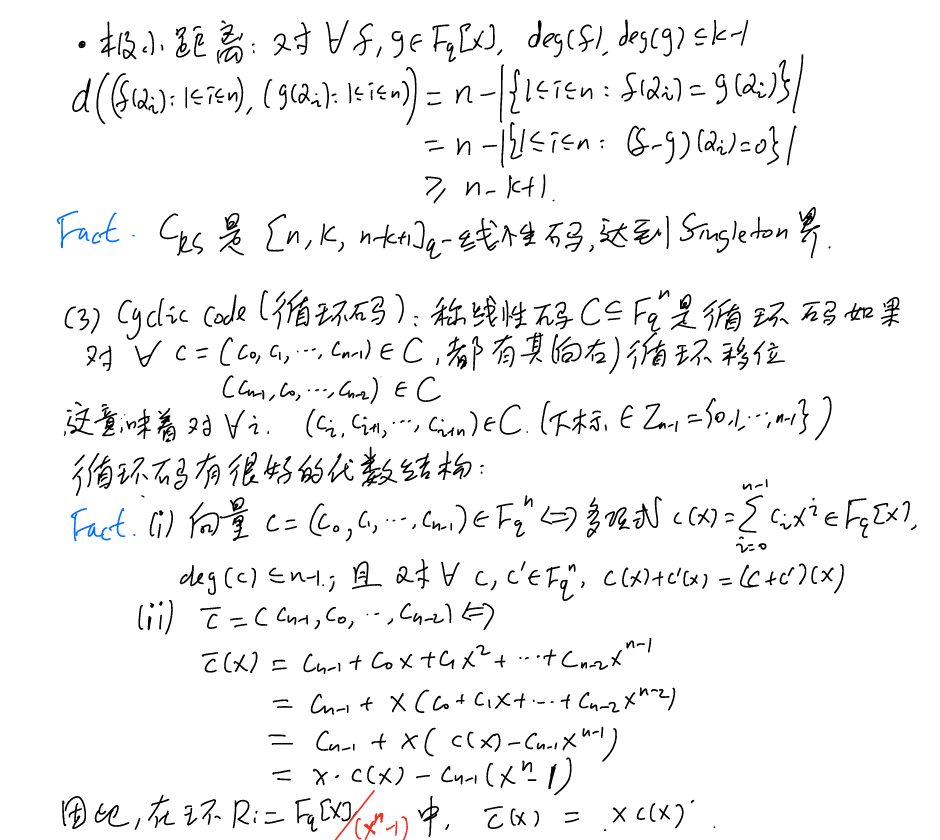 • 极小距离: 对 ∀ f, g ∈ F_q[x], deg(f), deg(g) ≤ k-1
d((f(α_i): 1≤i≤n), (g(α_i): 1≤i≤n)) = n - |{1≤i≤n : f(α_i) = g(α_i)}|
= n - |{1≤i≤n : (f-g)(α_i)=0}|
≥ n-k+1.
Fact. C_RS 是 [n, k, n-k+1]_q-线性码, 达到 Singleton 界.
(3) Cyclic code (循环码): 称线性码 C ⊆ F_q^n 是循环码如果
对 ∀ c = (c_0, c_1, ⋯, c_{n-1}) ∈ C, 都有其(向右)循环移位
(c_{n-1}, c_0, ⋯, c_{n-2}) ∈ C
这意味着对 ∀ i. (c_i, c_{i+1}, ⋯, c_{i+n}) ∈ C. (下标 ∈ Z_{n-1} = {0,1,⋯,n-1})
循环码有很好的代数结构:
Fact. (i) 向量 c = (c_0, c_1, ⋯, c_{n-1}) ∈ F_q^n ⟺ 多项式 c(x) = ∑_{i=0}^{n-1} c_i x^i ∈ F_q[x],
deg(c) ≤ n-1; 且 对 ∀ c, c' ∈ F_q^n, c(x)+c'(x) = (c+c')(x)
(ii) c̄ = (c_{n-1}, c_0, ⋯, c_{n-2}) ⟺
c̄(x) = c_{n-1} + c_0 x + c_1 x^2 + ⋯ + c_{n-2} x^{n-1}
= c_{n-1} + x(c_0 + c_1 x + ⋯ + c_{n-2} x^{n-2})
= c_{n-1} + x(c(x) - c_{n-1} x^{n-1})
= x · c(x) - c_{n-1}(x^n - 1)
因此, 在环 R := F_q[x]/(x^n-1) 中, c̄(x) = x c(x).